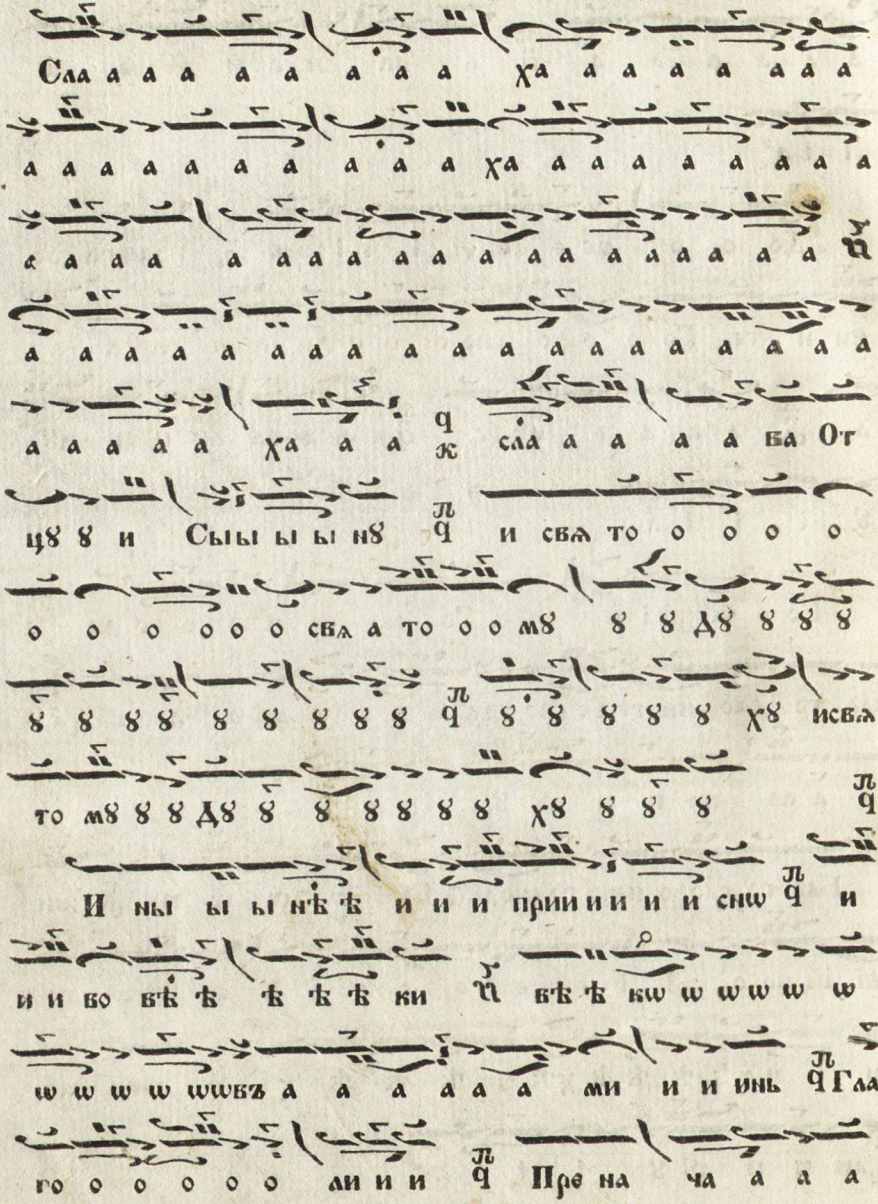 Сла а а а а а а а а ха а а а а а а а
а а а а а а а а а а а ха а а а а а а а а
а а а а а а а а а а а а а а а а а а
а а а а а а а а а а а а а а а а а а а
а а а а а ха а а ҁ к сла а а а а ва От
цꙋ ꙋ и Сы ы ы ы нꙋ п ҁ и свѧ то о о о о
о о о о о о свѧ а то о о мꙋ ꙋ ꙋ Дꙋ ꙋ ꙋ ꙋ
ꙋ ꙋ ꙋ ꙋ ꙋ ꙋ ꙋ ꙋ ꙋ п ҁ ꙋ ꙋ ꙋ ꙋ ꙋ хꙋ исвѧ
то мꙋ ꙋ ꙋ Дꙋ ꙋ ꙋ ꙋ ꙋ ꙋ ꙋ хꙋ ꙋ ꙋ ꙋ п ҁ
И ны ы ы нѣ ѣ и и и прии и и и и снѡ п ҁ и
и и во вѣ ѣ ѣ ѣ ѣ ки вѣ ѣ кѡ ѡ ѡ ѡ ѡ ѡ
ѡ ѡ ѡ ѡ ѡѡвъ а а а а а ми и и инь п ҁ Гла
го о о о о о ли и и п ҁ Пре на ча а а а